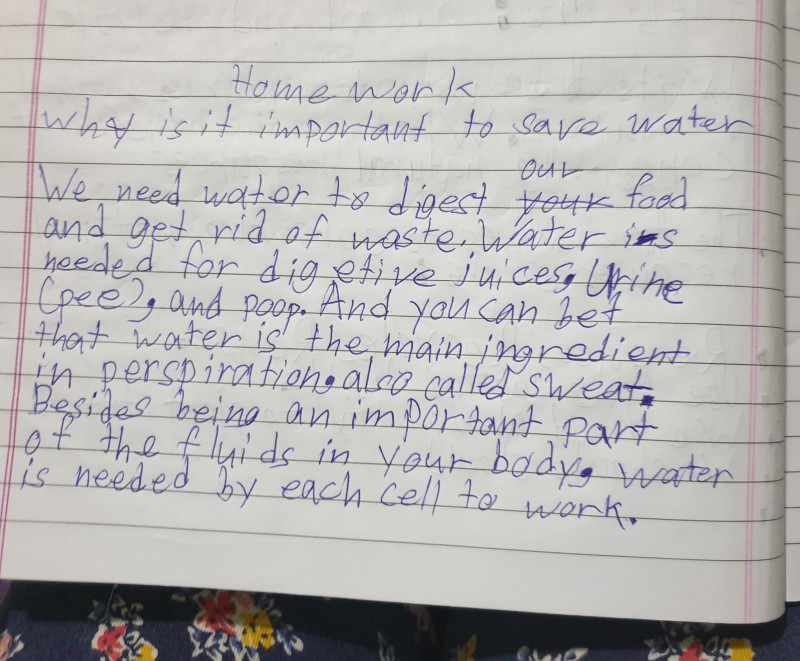 Home work
Why is it important to save water
our
We need water to digest your food
and get rid of waste. Water is
needed for digetive juices, Urine
(pee), and poop. And you can bet
that water is the main ingredient
in perspiration, also called sweat.
Besides being an important part
of the fluids in your body, water
is needed by each cell to work.